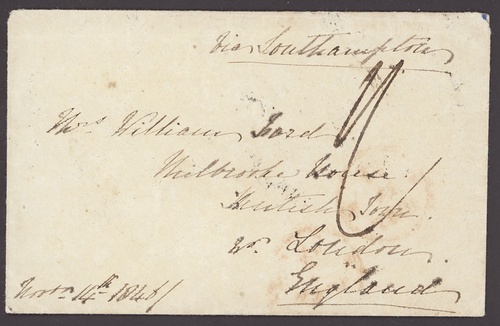 via Southampton
Mrs William Ford
Milbrooke House
Kentish Town
nr. London
England
Novr. 14th 1848/